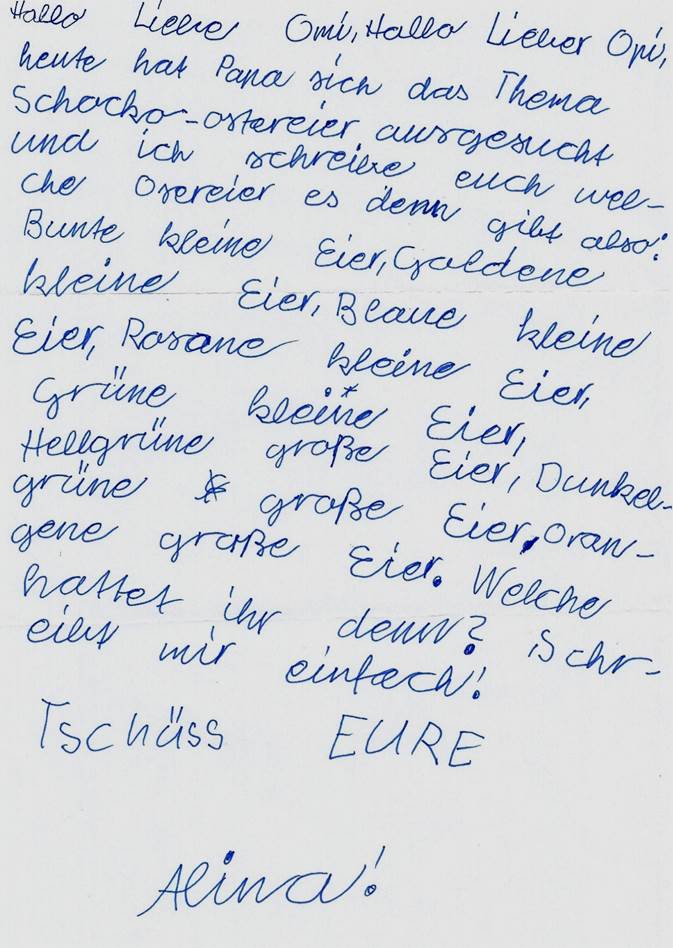 Hallo Liebe Omi, Hallo Lieber Opi,
heute hat Papa sich das Thema
Schocko-ostereier ausgesucht
und ich schreibe euch wel-
che Osereier es denn gibt also:
Bunte kleine Eier, Goldene
kleine Eier, Blaue kleine
Eier, Rosane kleine Eier,
Grüne kleine Eier,
Hellgrüne große Eier, Dunkel-
grüne große Eier, Oran-
gene große Eier. Welche
hattet ihr denn? Schr-
eibt mir einfach!
Tschüss EURE
Alina!